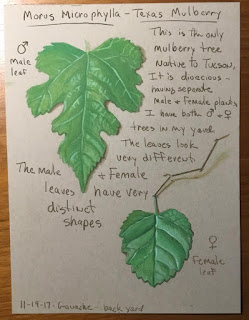 Morus Microphylla - Texas Mulberry
♂
Male
leaf
This is the only
mulberry tree
Native to Tucson.
It is dioecious -
having separate
male & female plants
I have both ♂ + ♀
trees in my yard.
The leaves look
very different.
The male + Female
leaves have very
distinct
shapes.
♀
Female
leaf
11-19-17 - Gouache - back yard